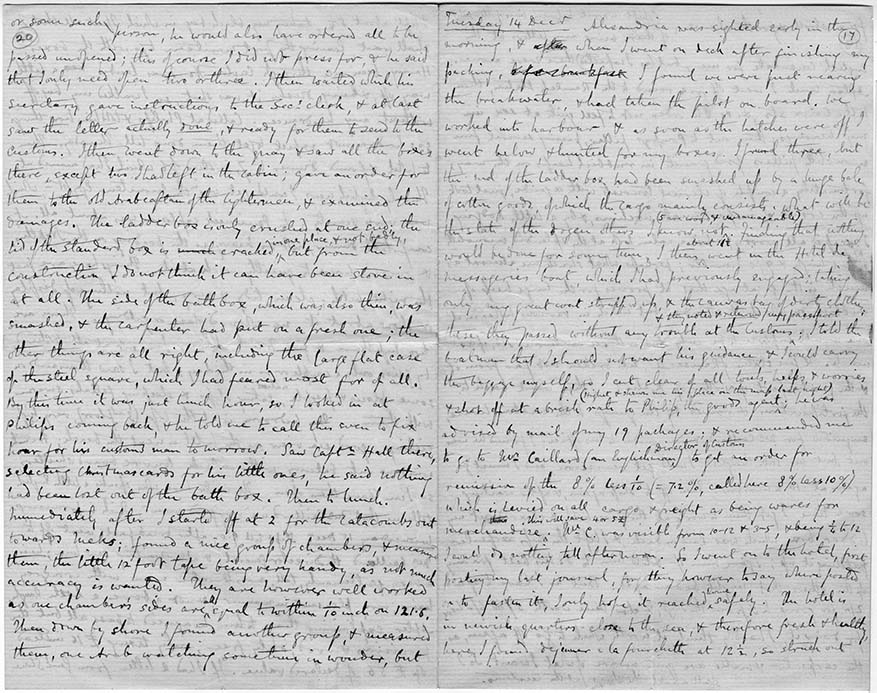 or some such
(20) person, he would also have ordered all to be
passed unopened; this of course I did not press for, & he said
that I only need open two or three. I then waited while his
secretary gave instructions to the Soc: clerk, & at last
saw the letter actually done, & ready for them to send to the
customs. I then went down to the quay & saw all the boxes
there, except two I had left in the cabin; gave an order for
them to the old Arab captain of the lightermen, & examined the
damages. The ladder box is only crushed at one end; the
lid of the standard box is much cracked, in one place, & not badly,
but from the
construction I do not think it can have been stove in
at all. The side of the bath box, which was also thin, was
smashed, & the carpenter had put on a fresh one; the
other things are all right, including the large flat case
of the steel square, which I had feared most for of all.
By this time it was just lunch hour, so I looked in at
Philips coming back, & he told me to call this even to fix
hour for his customs man tomorrow. Saw Captn Hall there,
selecting Christmas cards for his little ones, he said nothing
had been lost out of the bath box. Then to lunch.
Immediately after I started off at 2 for the catacombs out
towards Meks; found a nice group of chambers, & measured
them, the little 12 foot tape being very handy, as not much
accuracy is wanted. They are however well worked
as one chamber's sides are all equal to within 1/10 inch on 121.6.
Then down by shore I found another group, & measured
them, one Arab watching sometime in wonder, but
Tuesday 14 Decr Alexandria was sighted early in the (17)
morning, & after when I went on deck after finishing my
packing, before breakfast I found we were just nearing
the breakwater, & had taken the pilot on board. We
worked into harbour, & as soon as the hatches were off I
went below, & hunted for my boxes. I found three, but
the end of the ladder box had been smashed up by a huge bale
of cotton goods, of which the cargo mainly consists. What will be
the state of the dozen others I know not. Finding that nothing
would be done for some time, I then, about 10, went in the Hotel des
Messageries boat, which I had previously engaged: taking
only my great coat strapped up, & the canvas bag of dirt clothes;
& they noted & returned my passport
these they passed without any trouble at the Customs; I told the
boatman that I should not want his guidance, & I would carry
the baggage myself, so I cut clear of all touts, helps, & worries
& shot off at a brisk rate to Philip, the goods agent; he was
advised by mail of my 19 packages: & recommended me
to go to Mr Caillard (an Englishman) director of customs to get an order for
remission of the 8% less 1/10 (= 7.2%, called here 8% less 10%)
which is levied on all cargo & freight as being wares for
merchandize. This will save 4 or 5£
Mr C. was visible from 10-12 & 3-5, & being 1/4 to 12
I could do nothing till afternoon. So I went on to the hotel, first
posting my last journal, forgetting however to say where posted
or to fasten it, I only hope it reached you safely. The hotel is
in newish quarters close to the sea, & therefore fresh & healthy,
here, I found, dejeuner a la fourchette at 12½, so struck out